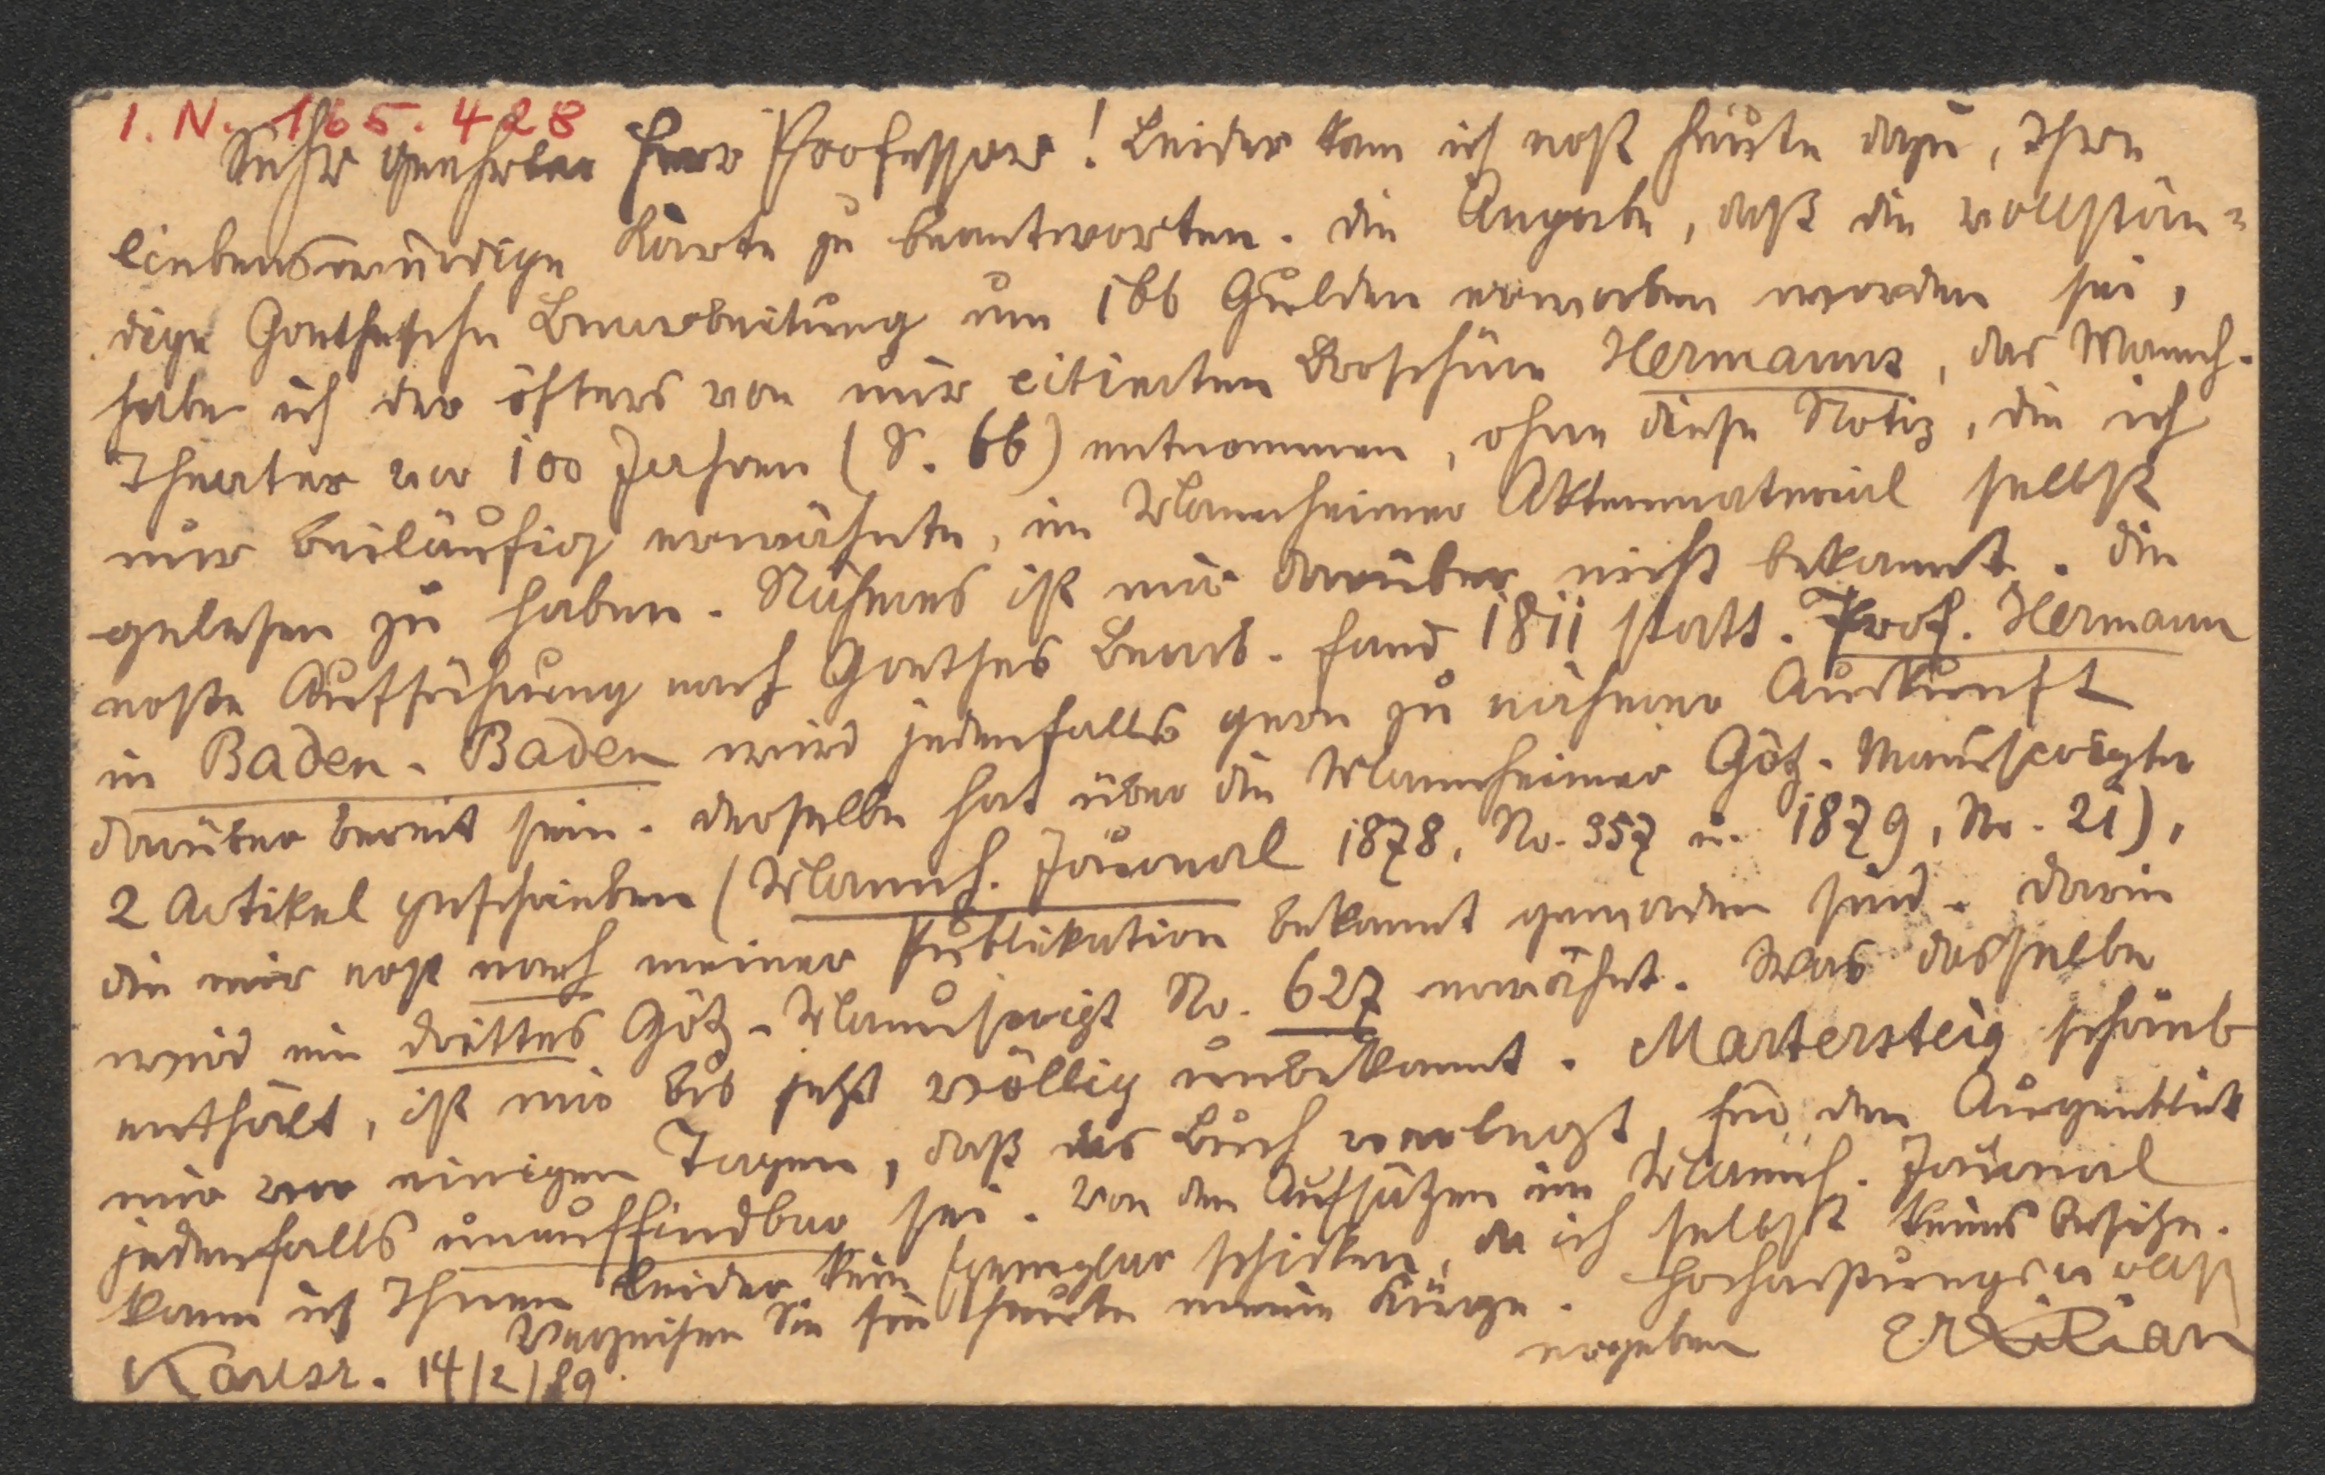 I. N. 165.428
Sehr geehrter Herr Professor! Leider kam ich erst heute dazu, Ihre
liebenswürdige Karte zu beantworten. Die Angabe, daß die vollstän-
dige Goethesche Bearbeitung um 166 Gulden erworben worden sei,
habe ich der öfters von mir citierten Broschüre Hermanns, das Mannh.
Theater vor 100 Jahren (S. 66) entnommen, ohne diese Notiz, die ich
nur beiläufig erwähnte, im Mannheimer Aktenmaterial selbst
gelesen zu haben. Näheres ist mir darüber nicht bekannt. Die
erste Aufführung nach Goethes Bearb. fand 1811 statt. Prof. Hermann
in Baden-Baden wird jedenfalls gern zu näherer Auskunft
darüber bereit sein. Derselbe hat über die Mannheimer Götz-Manuscripte
2 Artikel geschrieben (Mannh. Journal 1878, No. 357 u. 1879, No. 21),
die mir erst nach meiner Publikation bekannt geworden sind. Darin
wird ein drittes Götz-Manuscript No. 627 erwähnt. Was dasselbe
enthält, ist mir bis jetzt völlig unbekannt. Martersteig schrieb
mir vor einigen Tagen, daß das Buch verlegt, für den Augenblick
jedenfalls unauffindbar sei. Von den Aufsätzen im Mannh. Journal
kann ich Ihnen leider kein Exemplar schicken, da ich selbst keines besitze.
Verzeihen Sie für heute meine Kürze. Hochachtungsvollst
ergeben EKilian
Karlsr. 14/2/89.